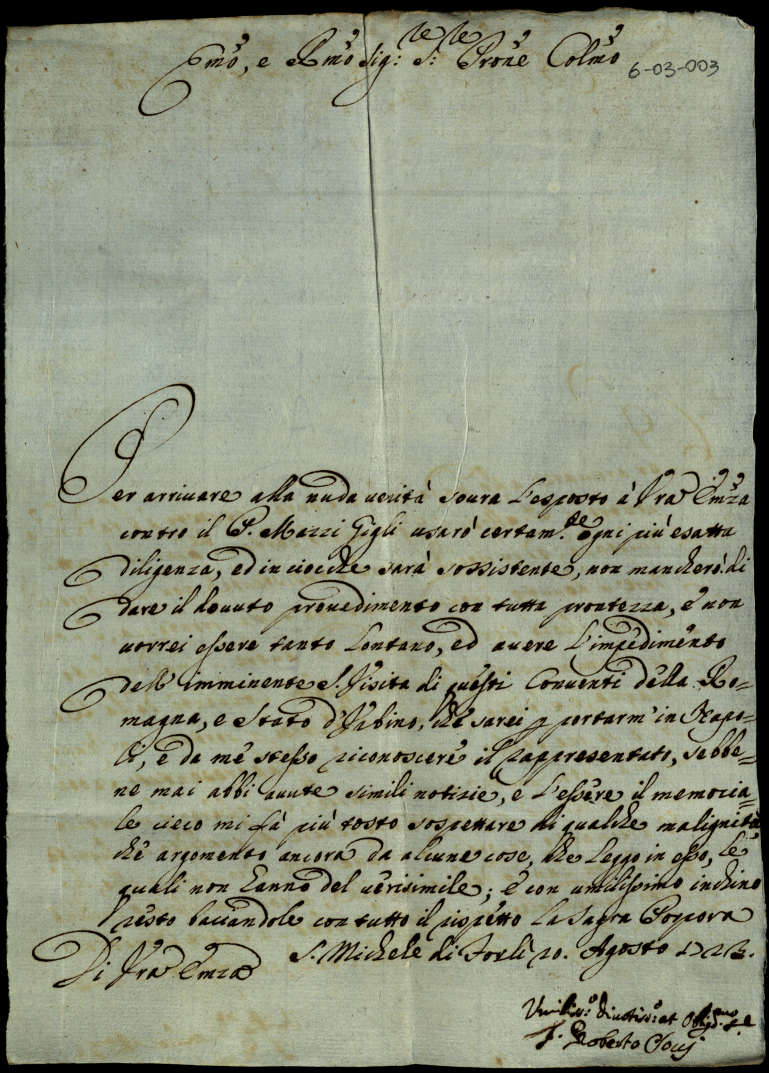 Em̃o, e Rm̃o Sig.r S.r P'rone Colm̃o
6-03-003
Per arrivare alla nuda verità sovra l'esposto à Vr̃a Em̃za
contro il P. Mazzi Gigli usarò certam.te ogni più esatta
diligenza, ed in ciocche sarà sossistente, non mancherò di
dare il dovuto provedimento con tutta prontezza, e non
vorrei essere tanto Lontano, ed avere l'impedimento
dell' imminente S. Visita di questi Conventi della Ro-
magna, e Stato d'Urbino, che sarei p portarm' in Napo-
li, e da me stesso riconoscere il rappresentato, sebbe-
ne mai abbi avute simili notizie, e l'essere il memoria-
le cieco mi fà più tosto sospettare di qualche malignità
che argomento ancora da alcune cose, che Leggo in esso, le
quali non hanno del verisimile; e con umilissimo inchino
resto baciandole con tutto il rispetto la Sagra Porpora
Di Vr̃a Em̃za S. Michele di Forlì 20. Agosto
Umiliss.o Divotiss.o et Obligmo
F. Roberto